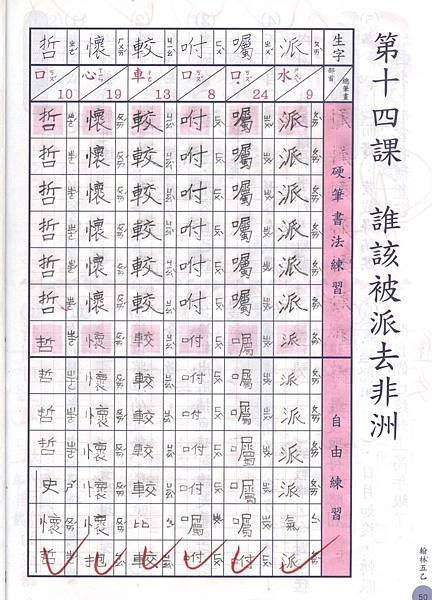 第十四課 誰該被派去非洲
生字 部首 總筆畫 硬筆書法練習 自由練習
派 水 9 派派派派派派派派派派派氣派
囑 口 24 囑囑囑囑囑囑囑囑囑囑囑囑咐
咐 口 8 咐咐咐咐咐咐咐咐咐咐咐囑咐
較 車 13 較較較較較較較較較較較比較
懷 心 19 懷懷懷懷懷懷懷懷懷懷懷懷抱
哲 口 10 哲哲哲哲哲哲哲哲哲哲史懷哲
翰林五乙
50